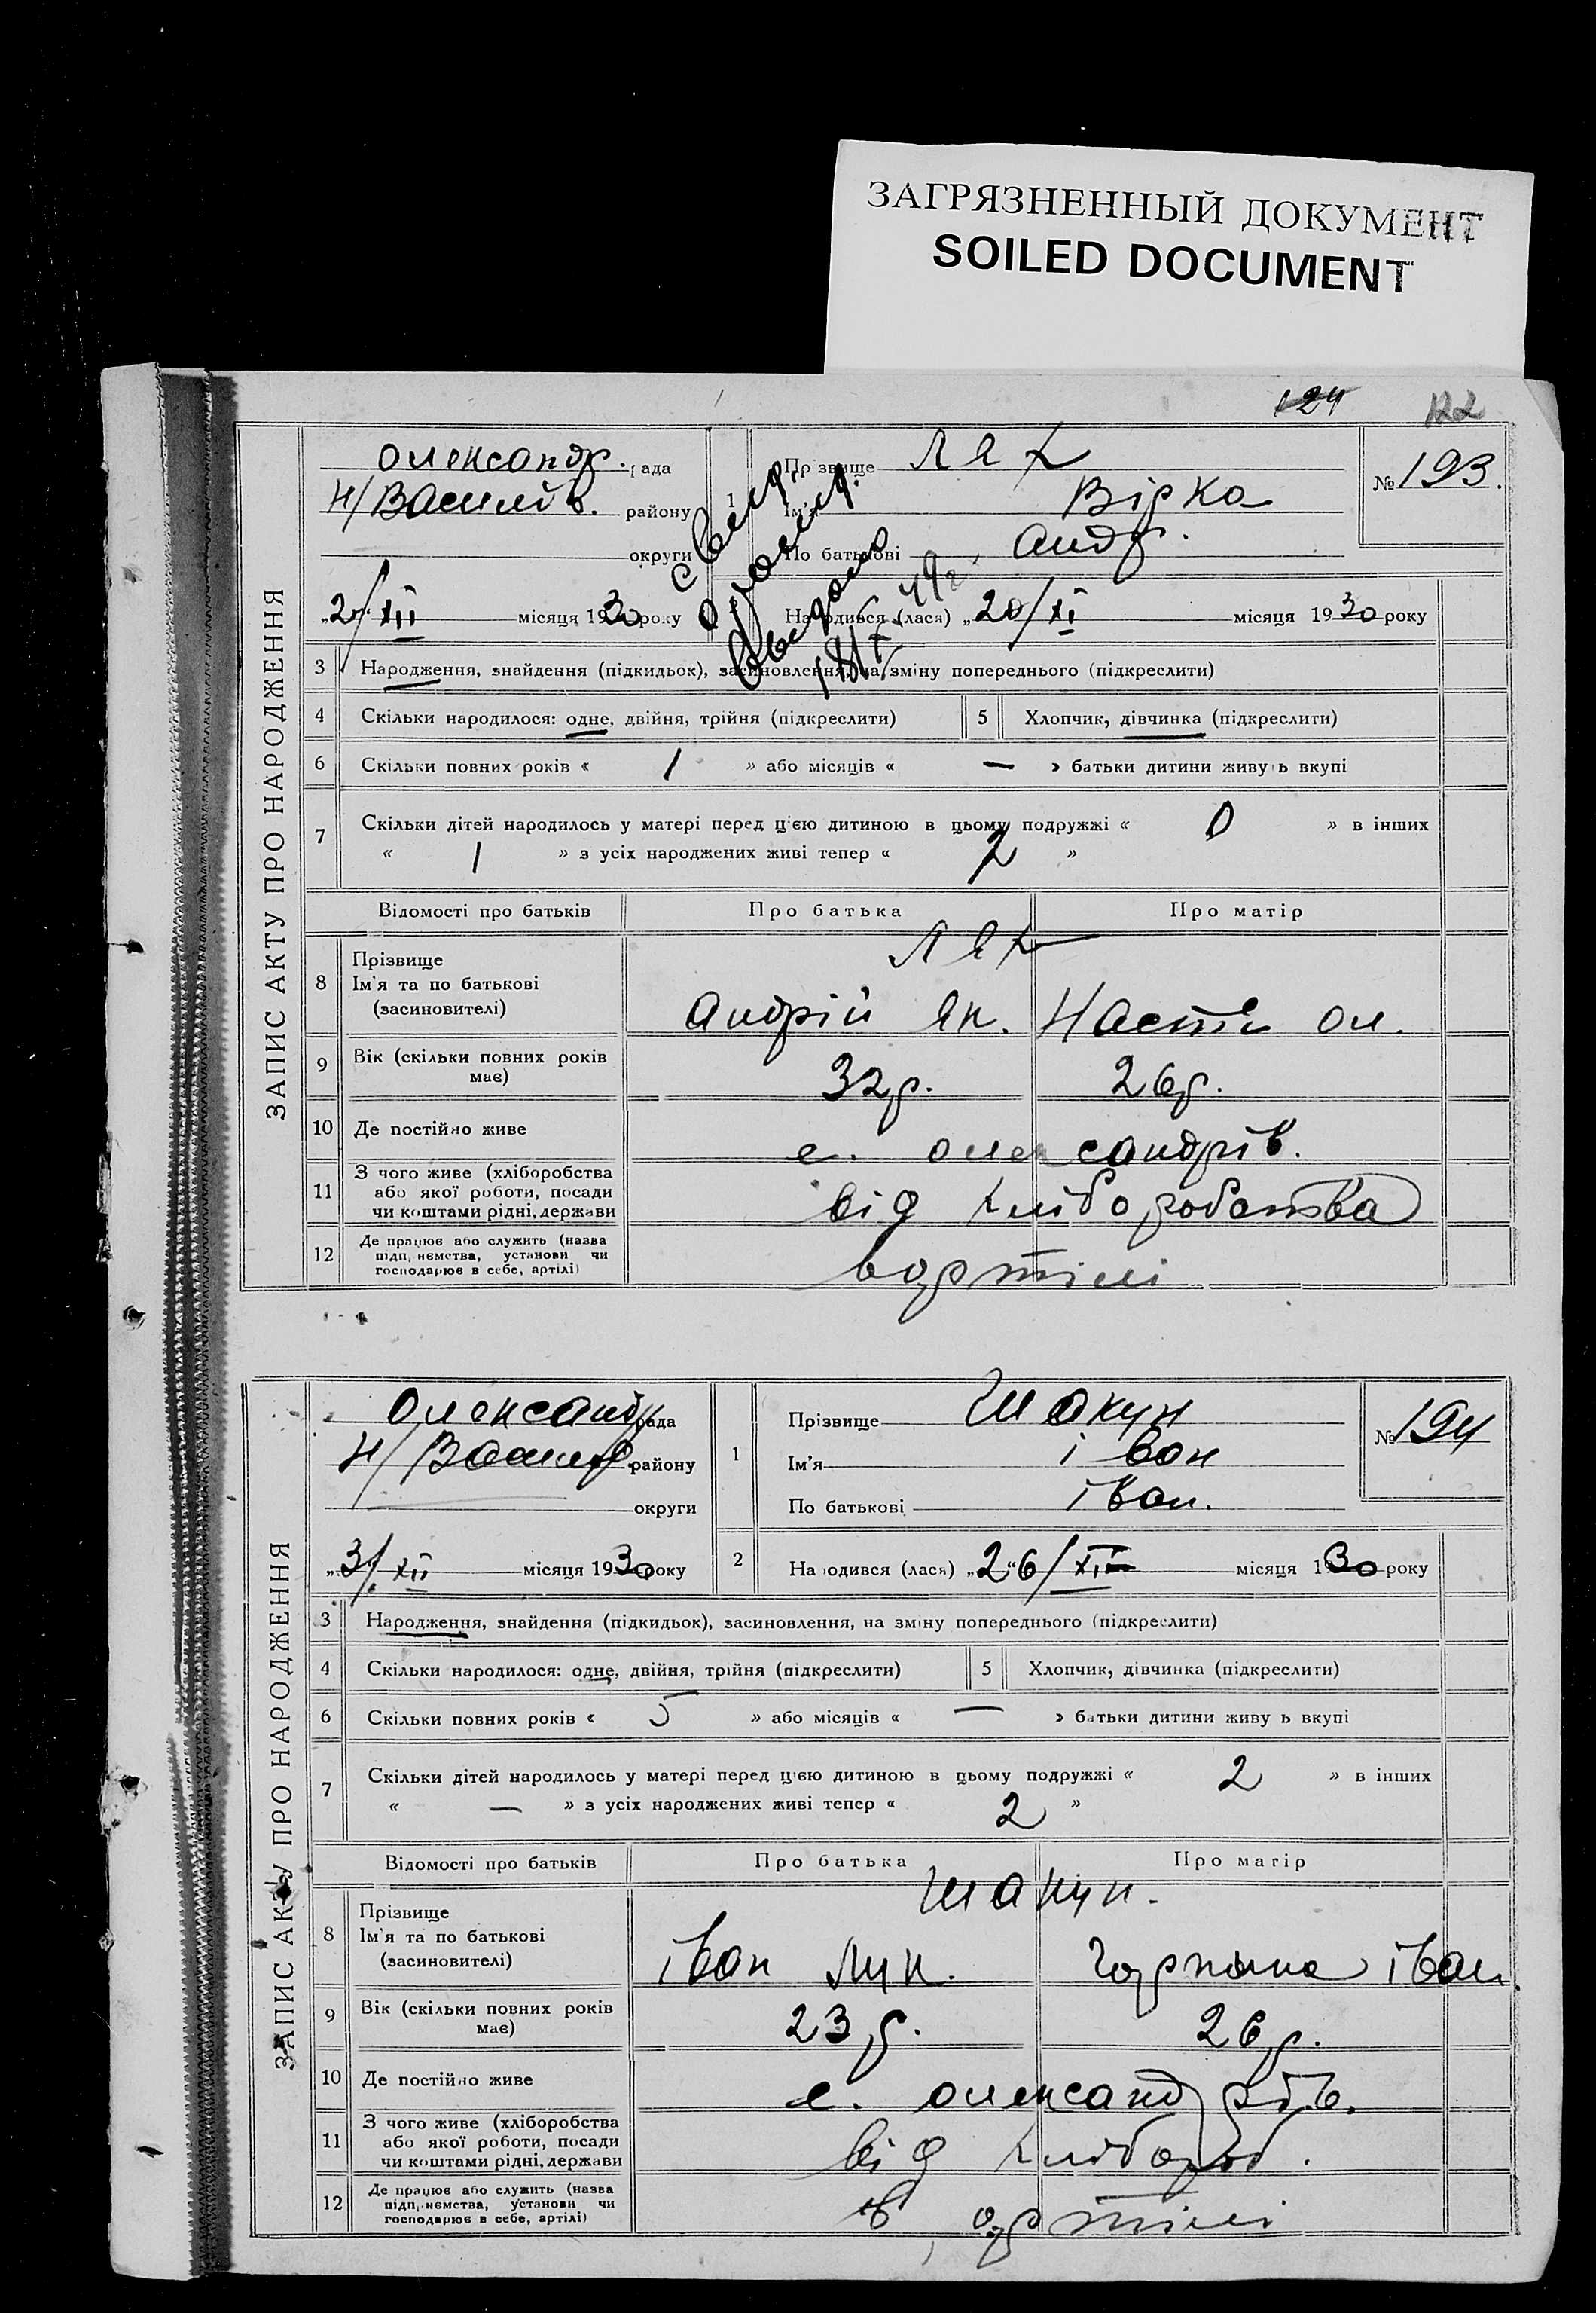 ЗАГРЯЗНЕННЫЙ ДОКУМЕНТ
SOILED DOCUMENT
124 122
ЗАПИС АКТУ ПРО НАРОДЖЕННЯ
Олександр. рада
Н/Василів. району
округи
1 Прізвище Лях
Ім'я Вірка
По батькові Андр.
№ 193.
„2/XII місяця 1930 року
Народився (лася) „20/XI місяця 1930 року
3 Народження, знайдення (підкидьок), засиновлення, на зміну попереднього (підкреслити)
4 Скільки народилося: одне, двійня, трійня (підкреслити) 5 Хлопчик, дівчинка (підкреслити)
6 Скільки повних років « 1 » або місяців « — » батьки дитини живуть вкупі
7 Скільки дітей народилось у матері перед цією дитиною в цьому подружжі « 0 » в інших
« 1 » з усіх народжених живі тепер « 2 »
Відомості про батьків Про батька Про матір
8 Прізвище Лях
Ім'я та по батькові
(засиновителі) Андрій Як. Настя Ол.
9 Вік (скільки повних років має) 32 р. 26 р.
10 Де постійно живе с. Олександрів.
11 З чого живе (хліборобства
або якої роботи, посади
чи коштами рідні, держави від хліборобства
12 Де працює або служить (назва
підприємства, установи чи
господарює в себе, артілі) вартілі
ЗАПИС АКТУ ПРО НАРОДЖЕННЯ
Олександр рада
Н/Василів району
округи
1 Прізвище Шакун
Ім'я Іван
По батькові Іван.
№ 194
„3/XII місяця 1930 року
2 Народився (лася) „26/XII місяця 1930 року
3 Народження, знайдення (підкидьок), засиновлення, на зміну попереднього (підкреслити)
4 Скільки народилося: одне, двійня, трійня (підкреслити) 5 Хлопчик, дівчинка (підкреслити)
6 Скільки повних років « 5 » або місяців « — » батьки дитини живуть вкупі
7 Скільки дітей народилось у матері перед цією дитиною в цьому подружжі « 2 » в інших
« — » з усіх народжених живі тепер « 2 »
Відомості про батьків Про батька Про матір
8 Прізвище Шакун.
Ім'я та по батькові
(засиновителі) Іван Лук. Іван
9 Вік (скільки повних років має) 23 р. 26 р.
10 Де постійно живе с. Олександрів.
11 З чого живе (хліборобства
або якої роботи, посади
чи коштами рідні, держави від хлібороб.
12 Де працює або служить (назва
підприємства, установи чи
господарює в себе, артілі) в артілі